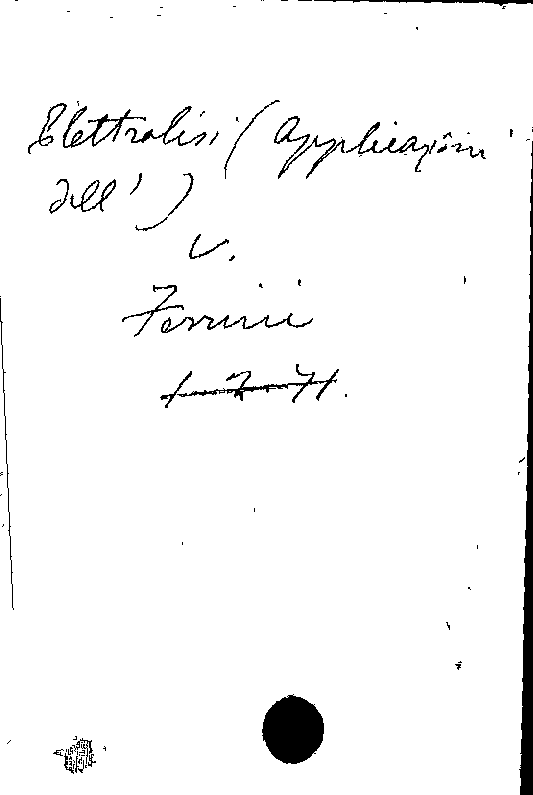 Elettrolisi (Applicazioni
dell')
V.
Ferrini
1-7-71.